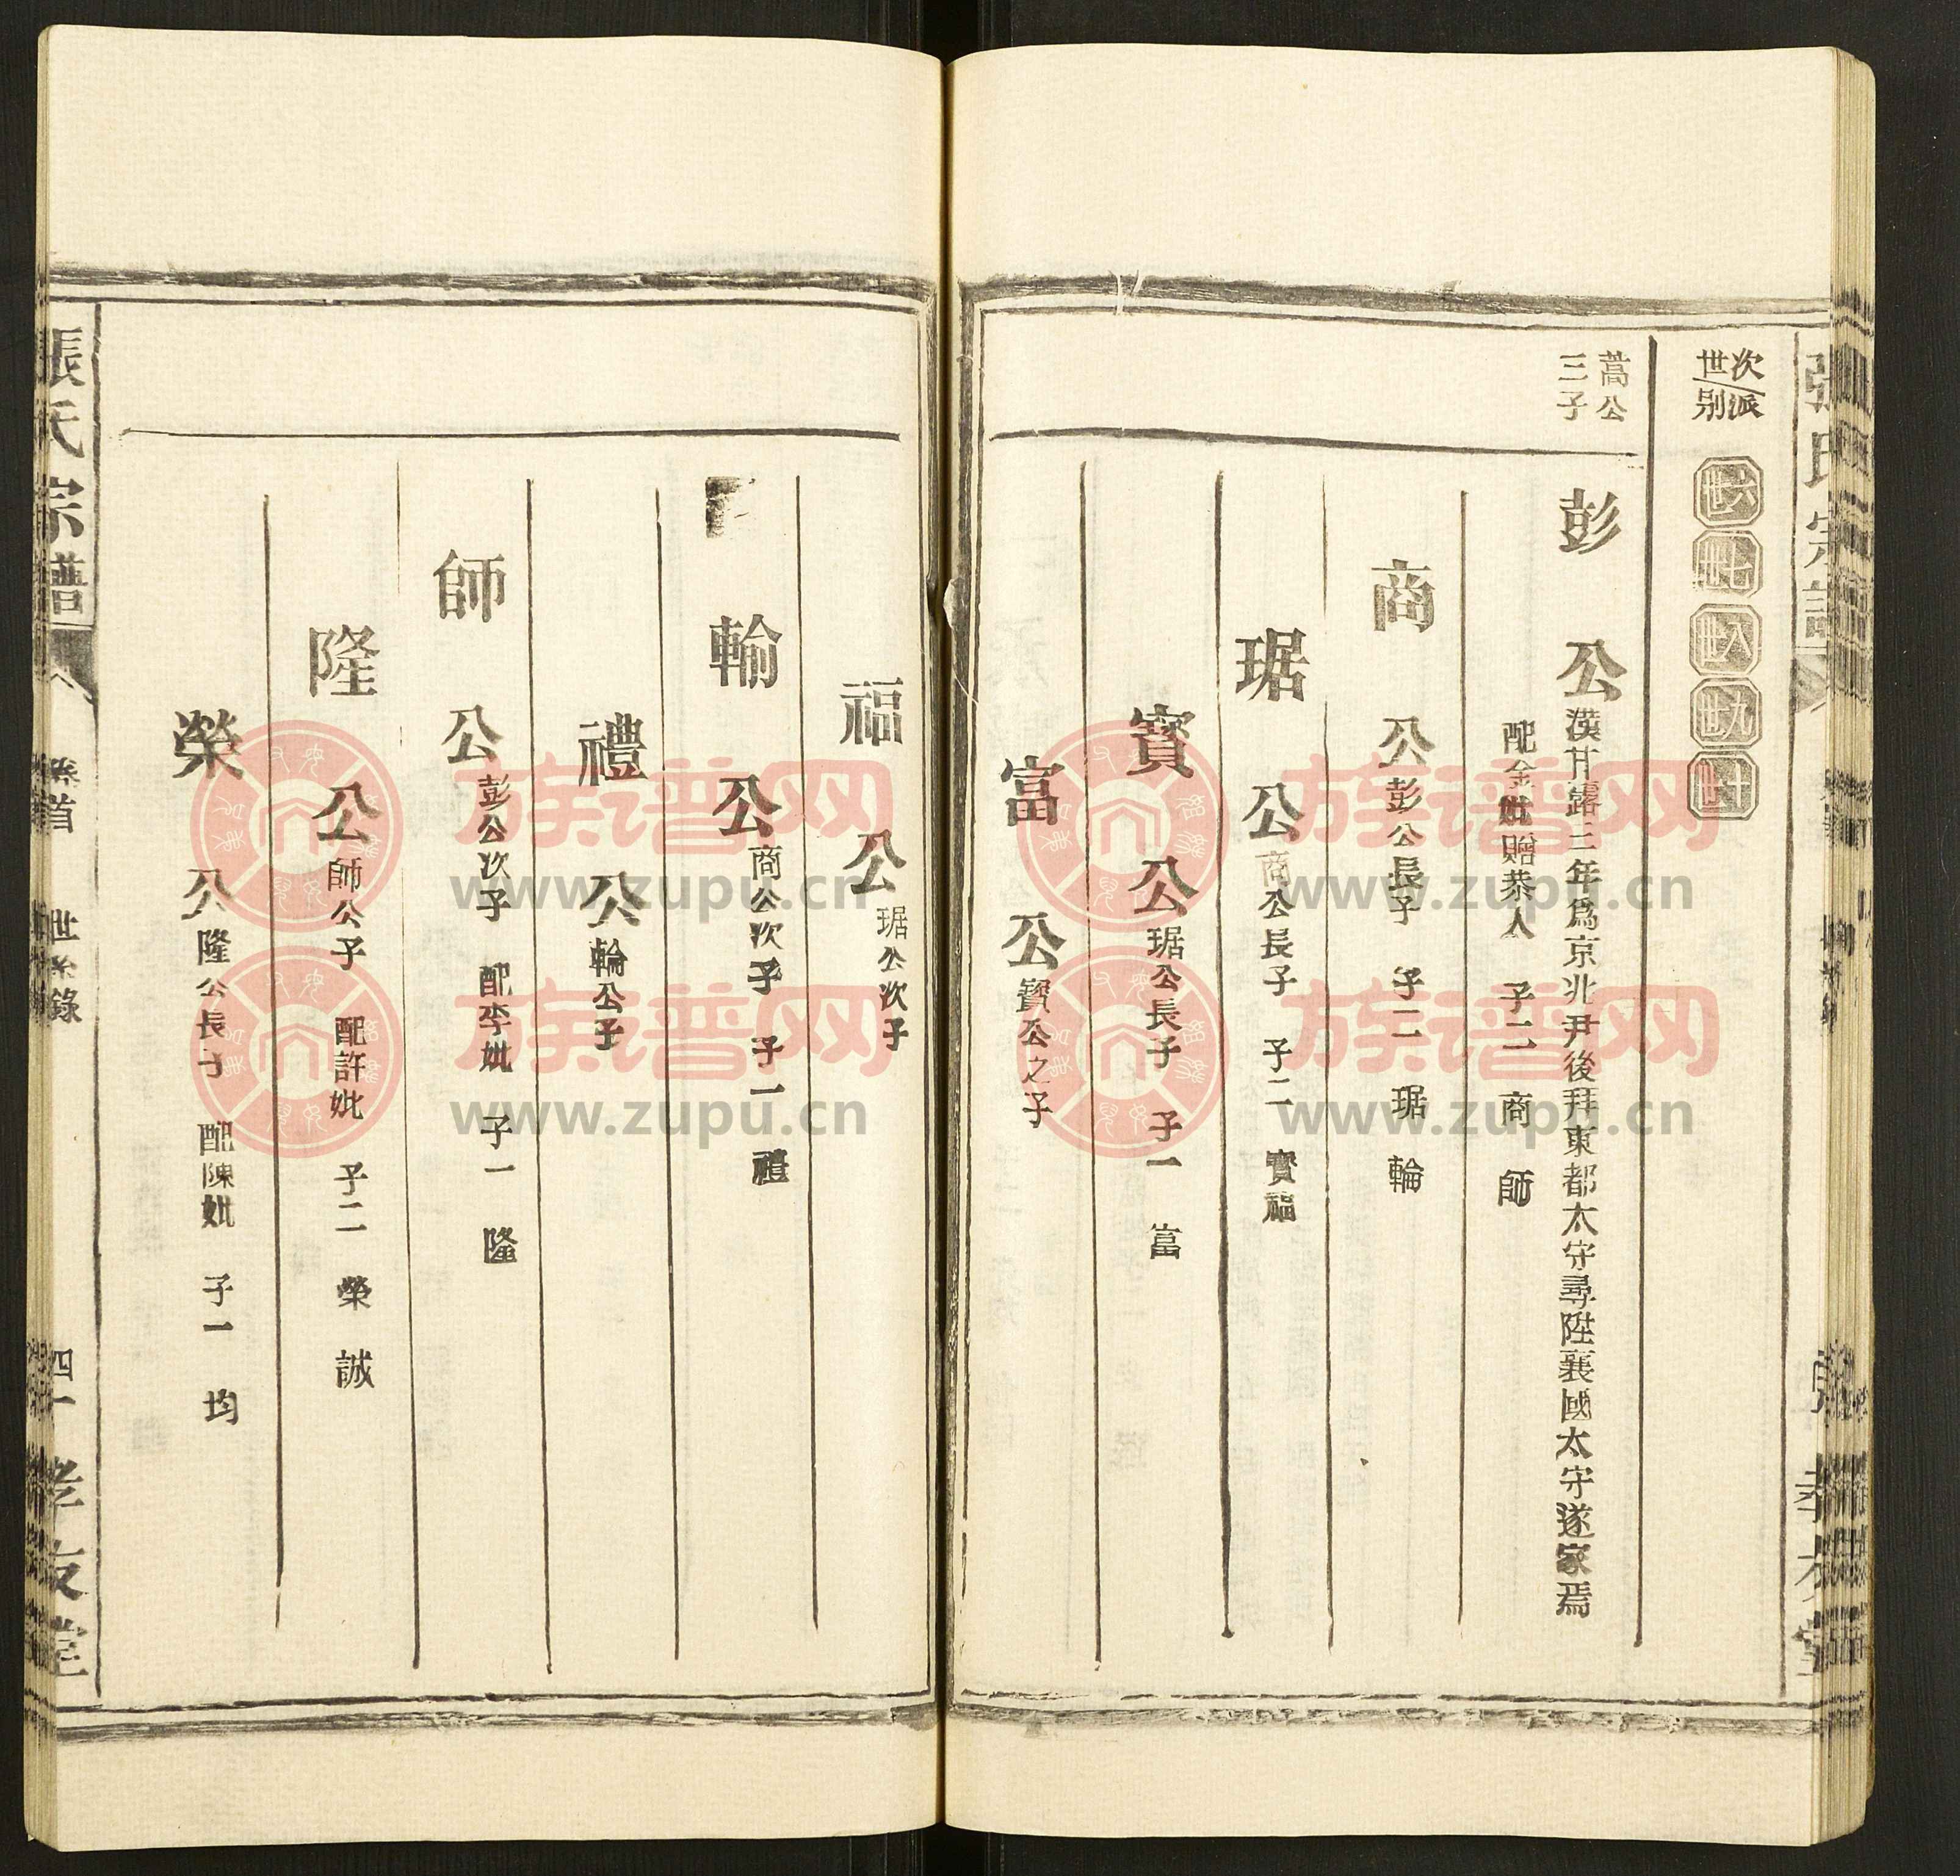 次派
世別
六世
七世
八世
九世
十世
蒿公
三子
彭公漢甘露三年爲京兆尹後拜東都太守尋陞襄國太守遂家焉
配金妣贈恭人 子二 商 師
商公彭公長子 子二 琚 輪
琚公商公長子 子二 寶福
寶公琚公長子 子一 富
富公寶公之子
福公琚公次子
輸公商公次子 子一 禮
禮公輪公子
師公彭公次子 配李妣 子一 隆
隆公師公子 配許妣 子二 榮 誠
榮公隆公長子 配陳妣 子一 均
張氏宗譜
卷首 世系錄
四一
孝友堂
族谱网
www.zupu.cn
族谱网
www.zupu.cn
族谱网
www.zupu.cn
族谱网
www.zupu.cn